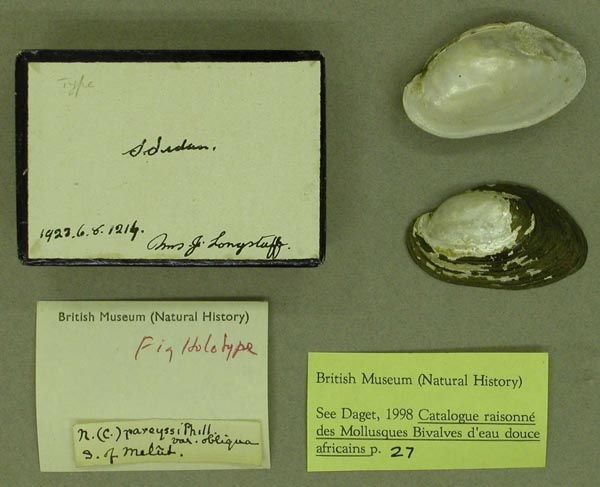 Type
S. Sudan.
1923.6.8.1214.
Mrs J. Longstaff.
British Museum (Natural History)
Fig Holotype
N. (C.) pareyssi Phil.
var. obliqua
S. of Melût.
British Museum (Natural History)
See Daget, 1998 Catalogue raisonné
des Mollusques Bivalves d'eau douce
africains p. 27